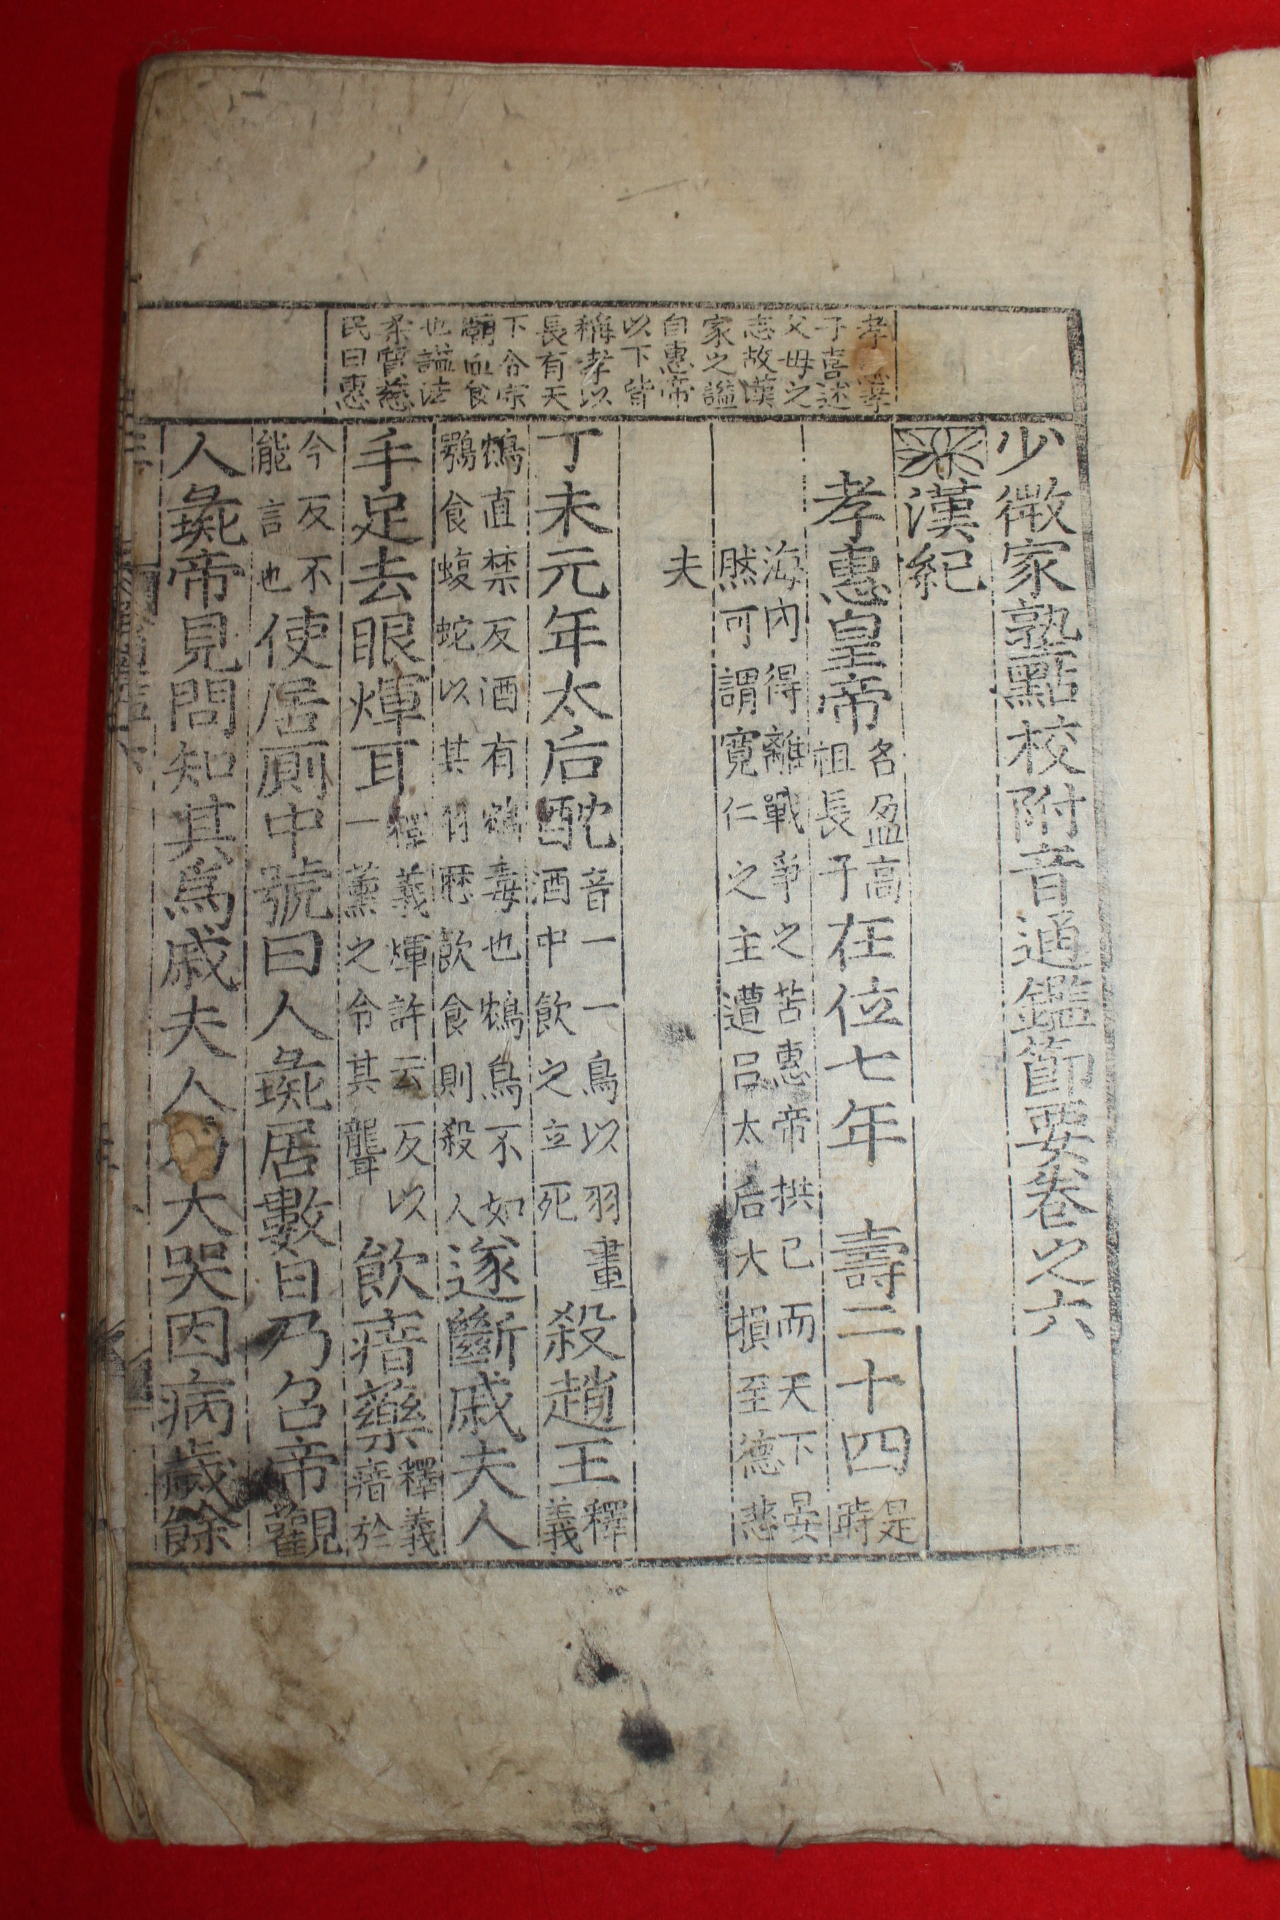 孝孝
子喜述
父母之
志故漢
家之謚
自惠帝
以下皆
稱孝以
長有天
下合宗
廟血食
也謚法
柔質慈
民曰惠
少微家塾點校附音通鑑節要卷之六
漢紀
孝惠皇帝名盈高祖長子在位七年 壽二十四是時
海內得離戰爭之苦惠帝拱己而天下晏
然可謂寬仁之主遭呂太后大損至德悲
夫
丁未元年太后酖音一一鳥以羽畫酒中飲之立死殺趙王釋義
鴆直禁反酒有鴆毒也鴆鳥不如鶚食蝮蛇以其羽歷飲食則殺人遂斷戚夫人
手足去眼煇耳釋義煇許云反以一薰之令其聾飲瘖藥釋義瘖於
今反不能言也使居厠中號曰人彘居數日乃召帝觀
人彘帝見問知其爲戚夫人乃大哭因病歲餘